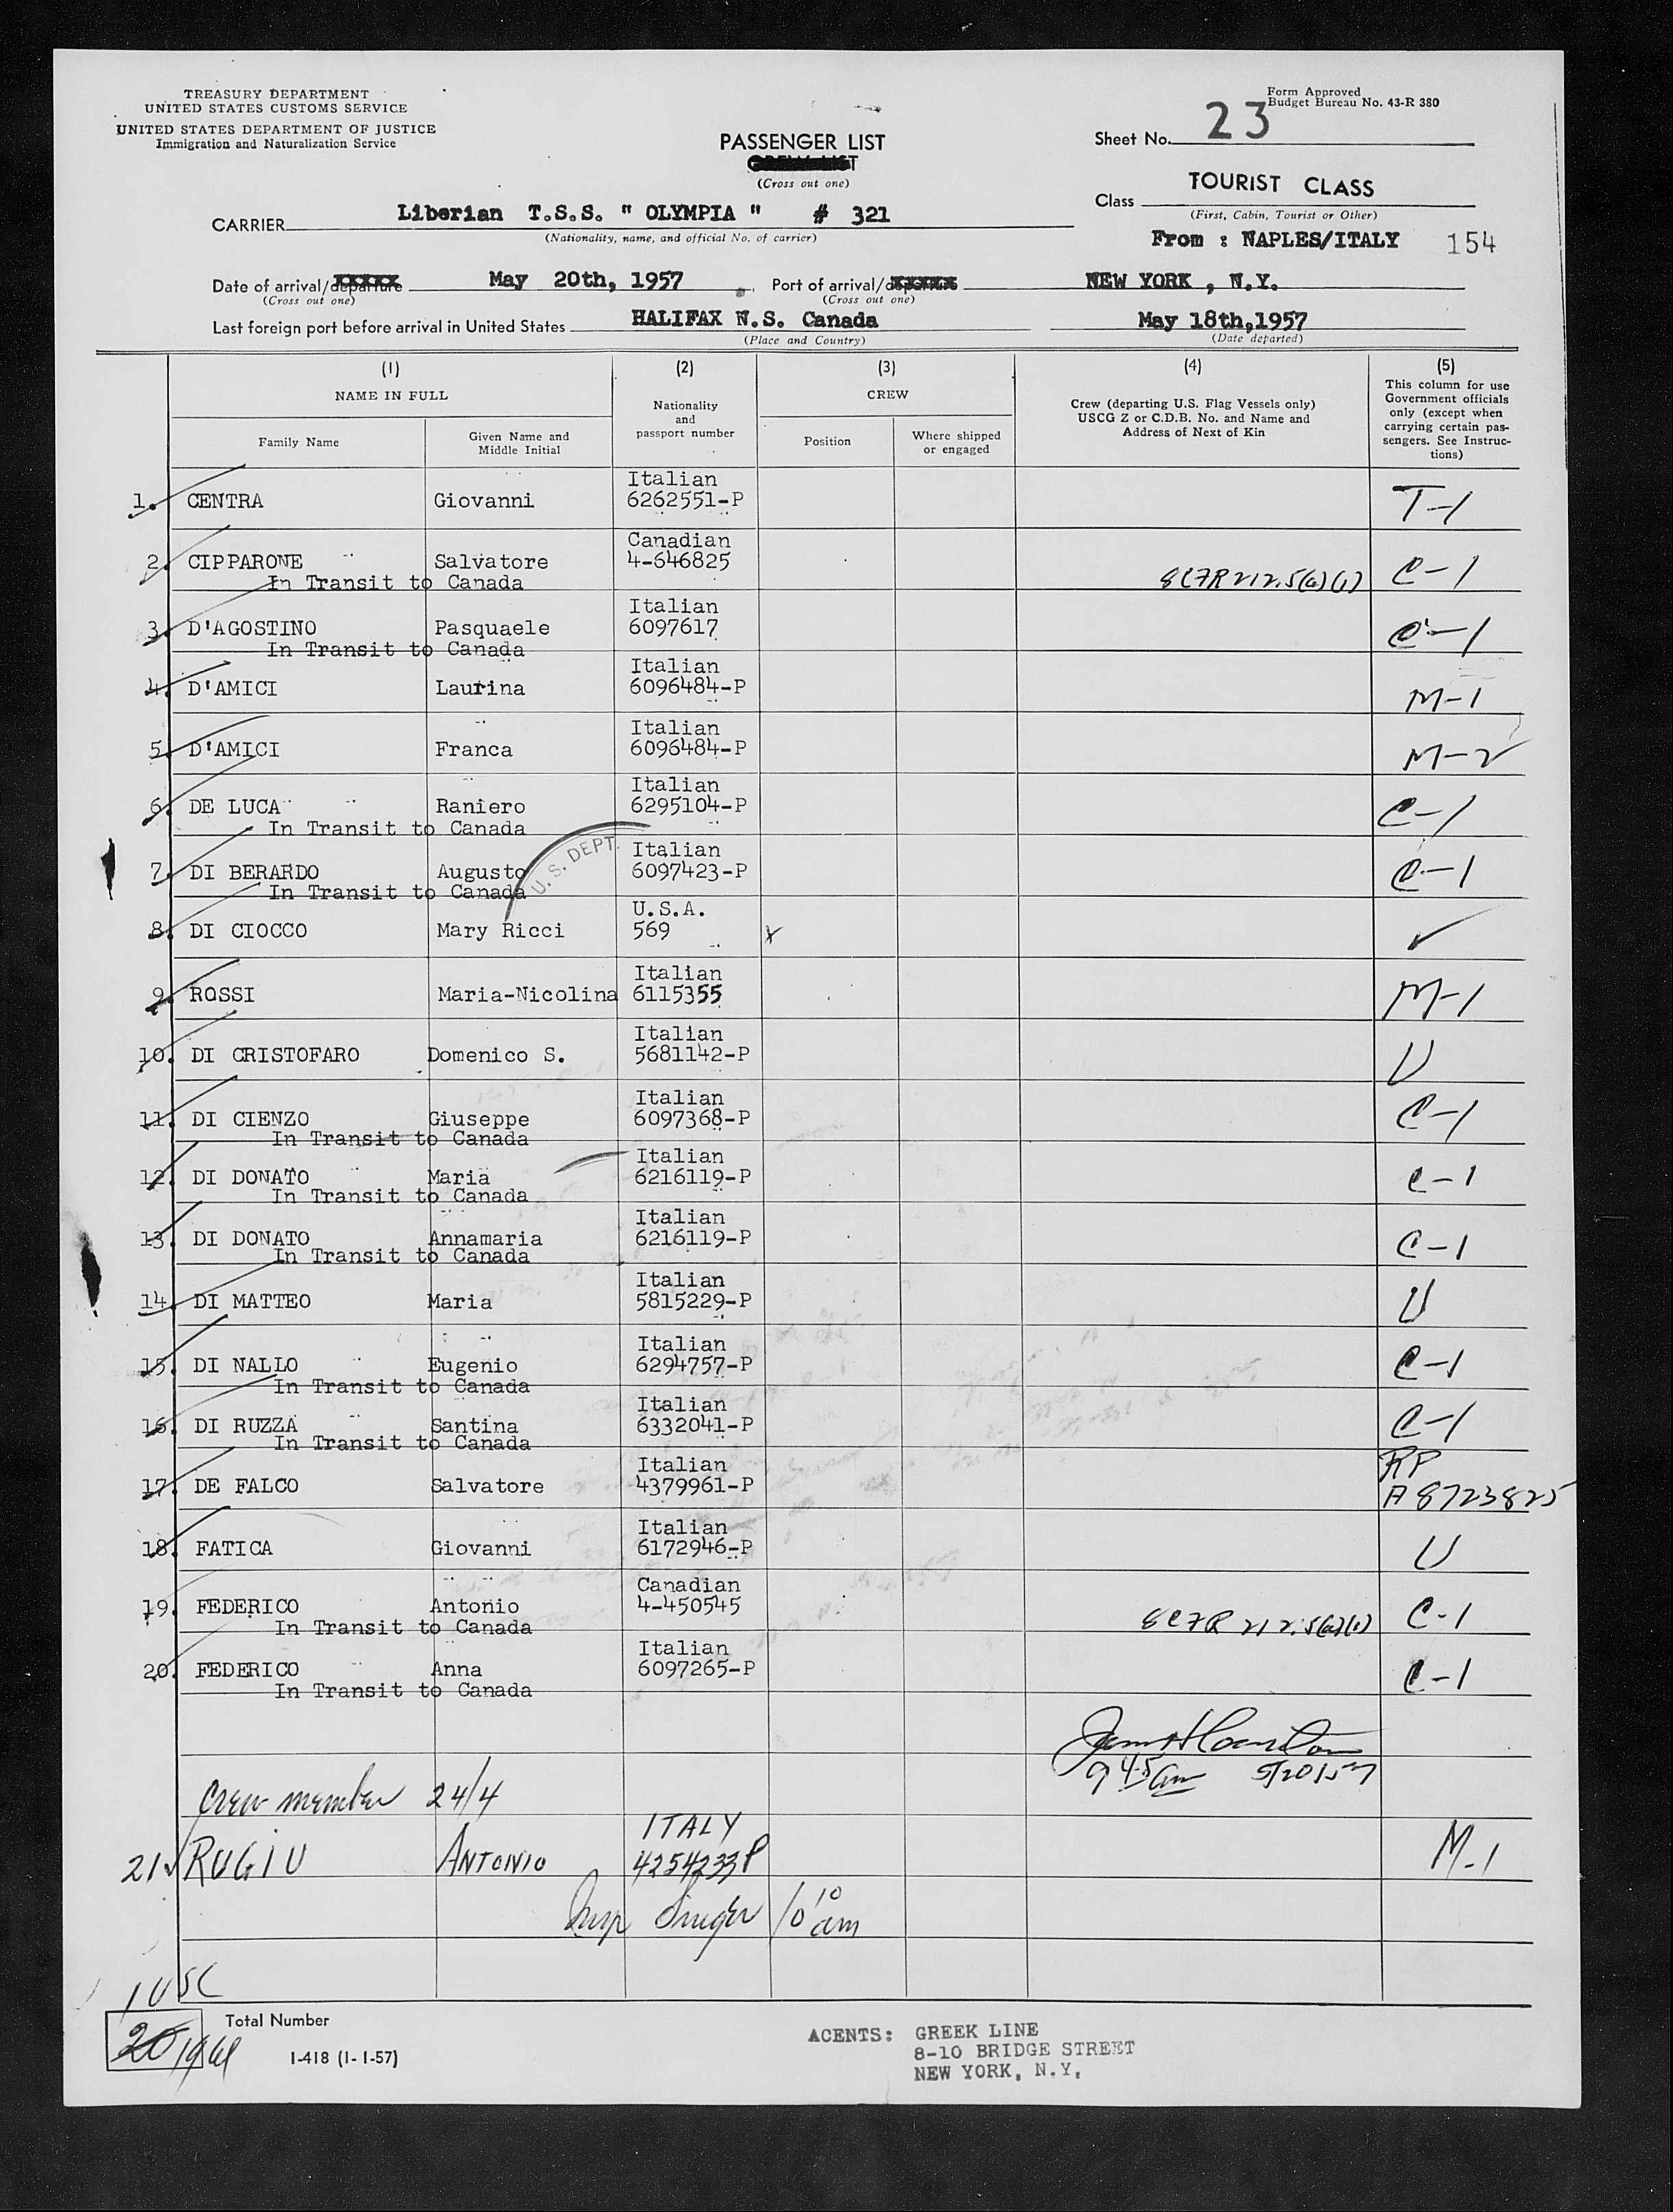 TREASURY DEPARTMENT
UNITED STATES CUSTOMS SERVICE
UNITED STATES DEPARTMENT OF JUSTICE
Immigration and Naturalization Service
Form Approved
Budget Bureau No. 43-R 380
PASSENGER LIST
(Cross out one)
Sheet No. 23
Class TOURIST CLASS
(First, Cabin, Tourist or Other)
CARRIER Liberian T.S.S. " OLYMPIA " # 321
(Nationality, name, and official No. of carrier)
From : NAPLES/ITALY 154
Date of arrival/departure May 20th, 1957 Port of arrival/ NEW YORK , N.Y.
(Cross out one) (Cross out one)
Last foreign port before arrival in United States HALIFAX N.S. Canada May 18th,1957
(Place and Country) (Date departed)
(1) (2) (3) (4) (5)
NAME IN FULL
Family Name
Given Name and
Middle Initial
Nationality
and
passport number
CREW
Position
Where shipped
or engaged
Crew (departing U.S. Flag Vessels only)
USCG Z or C.D.B. No. and Name and
Address of Next of Kin
This column for use
Government officials
only (except when
carrying certain pas-
sengers. See Instruc-
tions)
Italian
1. CENTRA Giovanni 6262551-P T-1
Canadian
2. CIPPARONE Salvatore 4-646825 8CFR212.5(a)(1) C-1
In Transit to Canada
Italian
3. D'AGOSTINO Pasquaele 6097617 C-1
In Transit to Canada
Italian
4. D'AMICI Laurina 6096484-P M-1
Italian
5. D'AMICI Franca 6096484-P M-2
Italian
6. DE LUCA Raniero 6295104-P C-1
In Transit to Canada
U.S. DEPT.
Italian
7. DI BERARDO Augusto 6097423-P C-1
In Transit to Canada
U.S.A.
8. DI CIOCCO Mary Ricci 569 x ✓
Italian
9. ROSSI Maria-Nicolina 6115355 M-1
Italian
10. DI CRISTOFARO Domenico S. 5681142-P U
Italian
11. DI CIENZO Giuseppe 6097368-P C-1
In Transit to Canada
Italian
12. DI DONATO Maria 6216119-P C-1
In Transit to Canada
Italian
13. DI DONATO Annamaria 6216119-P C-1
In Transit to Canada
Italian
14. DI MATTEO Maria 5815229-P U
Italian
15. DI NALLO Eugenio 6294757-P C-1
In Transit to Canada
Italian
16. DI RUZZA Santina 6332041-P C-1
In Transit to Canada
Italian RP
17. DE FALCO Salvatore 4379961-P A 8723825
Italian
18. FATICA Giovanni 6172946-P U
Canadian
19. FEDERICO Antonio 4-450545 8CFR 212.5(a)(1) C-1
In Transit to Canada
Italian
20. FEDERICO Anna 6097265-P C-1
In Transit to Canada
9 45 am 5/20/57
Crew member 24/4
ITALY
21 RUGIU ANTONIO 4254233P M-1
Insp 10 10 am
1 USC
20 19
Total Number
I-418 (1-1-57)
AGENTS: GREEK LINE
8-10 BRIDGE STREET
NEW YORK, N.Y.